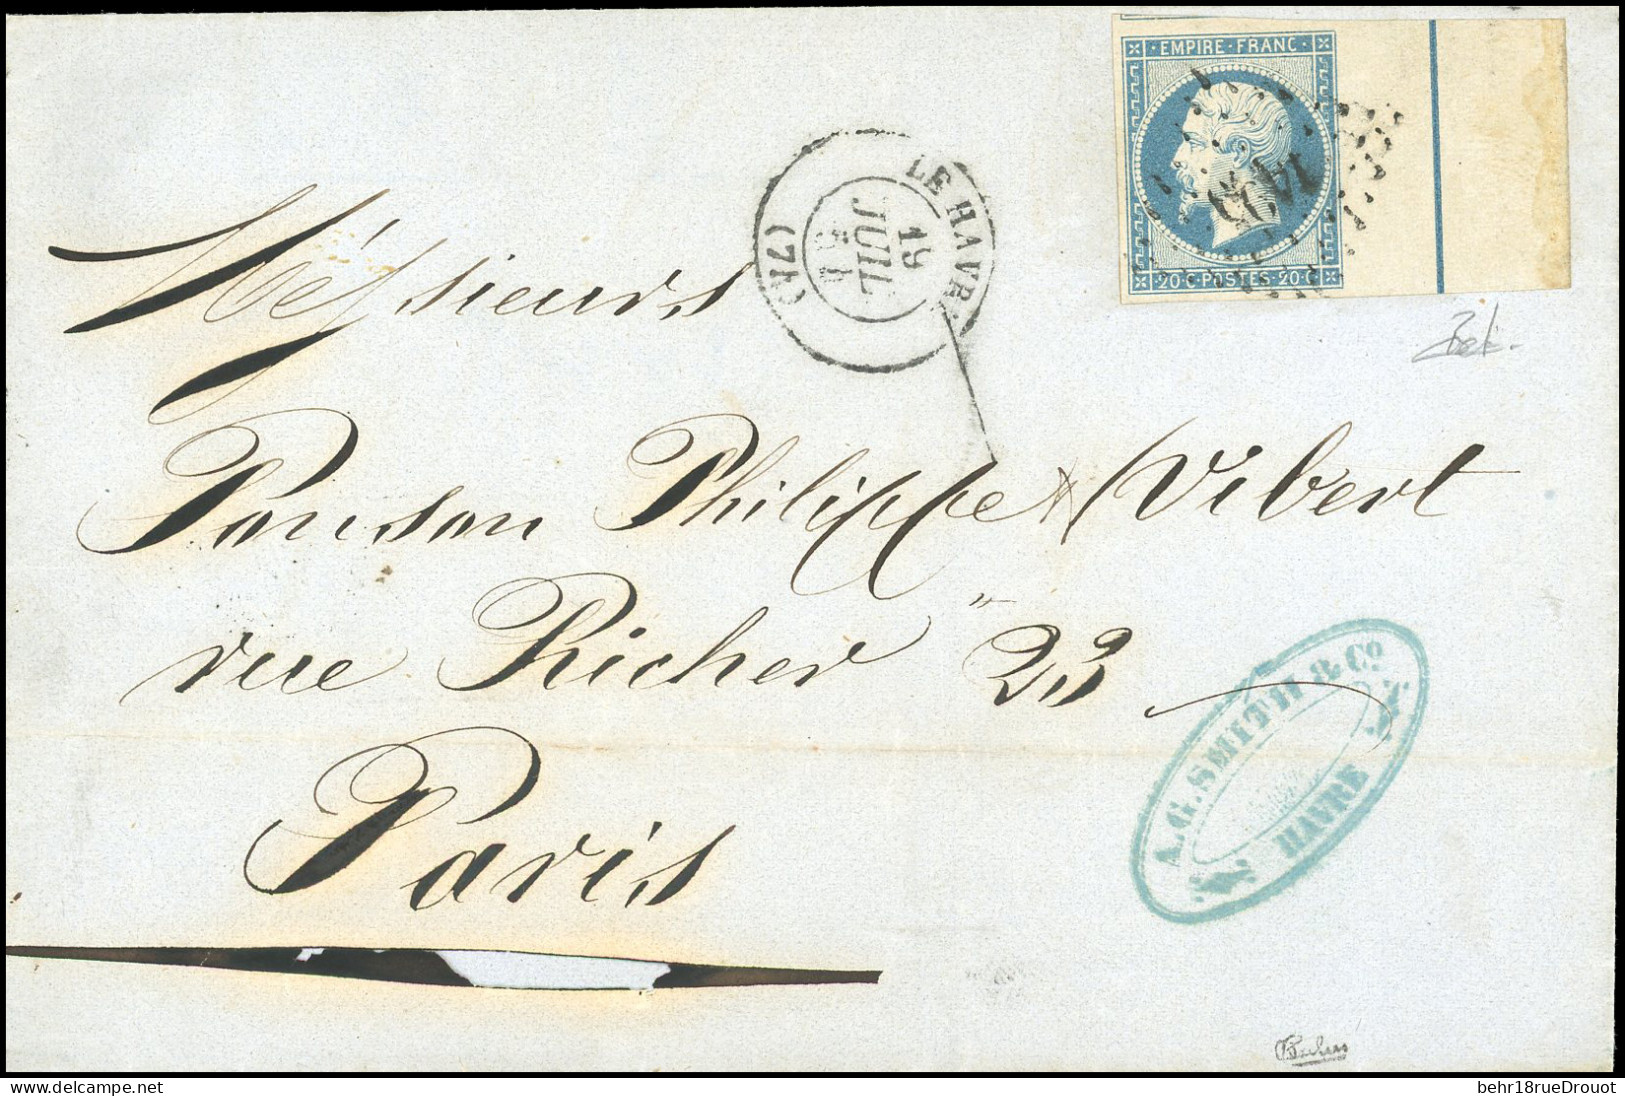 EMPIRE · FRANC ·
20 · C · POSTES · 20 · C ·
LE HAVRE
19
JUIL
(74)
Messieurs
Ponson Philippe & Vibert
rue Richer " 23
Paris
A.G. SMITH & Cº
HAVRE
www.delcampe.net
behr18rueDrouot